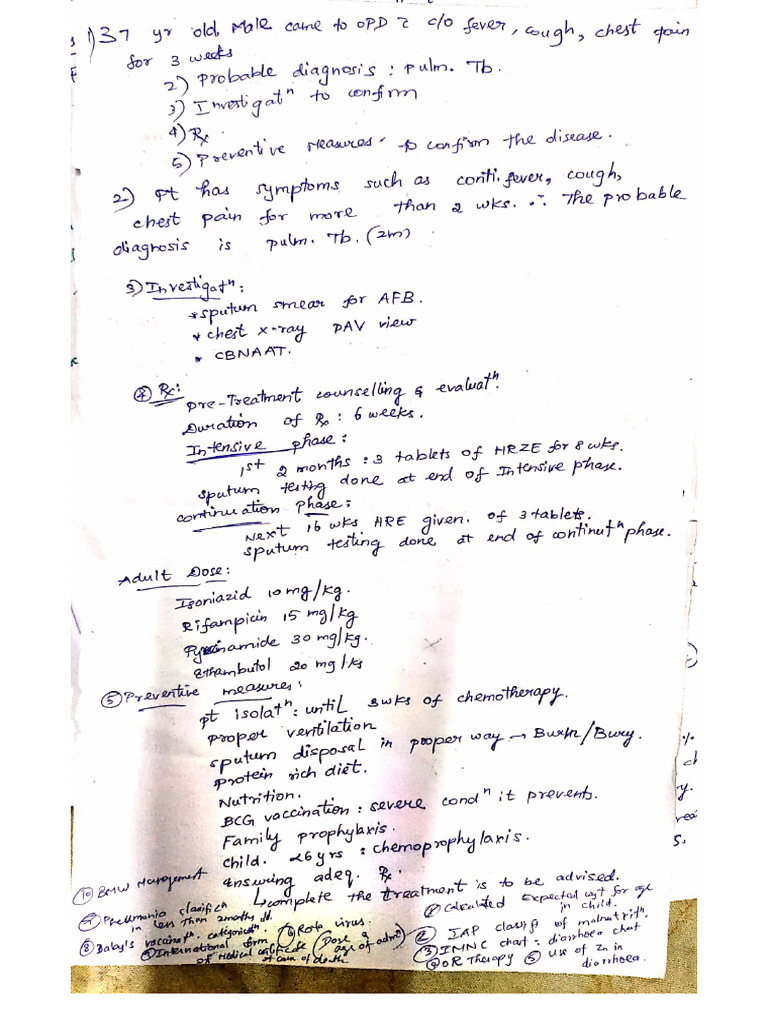 1) 37 yr old Male came to OPD c̄ c/o fever, cough, chest pain
for 3 weeks
2) Probable diagnosis : pulm. Tb.
3) Investigatⁿ to confirm
4) Rx
5) Preventive measures to confirm the disease.
2) Pt has symptoms such as conti. fever, cough,
chest pain for more than 2 wks. ∴ The probable
diagnosis is pulm. Tb. (2m)
3) Investigatⁿ:
* sputum smear for AFB.
* chest x-ray PAV view
* CBNAAT.
④ Rx:
Pre-Treatment counselling & evaluatⁿ.
Duration of Rx : 6 weeks.
Intensive phase :
1st 2 months : 3 tablets of HRZE for 8 wks.
sputum testing done at end of Intensive phase.
continuation phase :
Next 16 wks HRE given. of 3 tablets.
sputum testing done at end of continutⁿ phase.
Adult Dose:
Isoniazid 10 mg/kg.
Rifampicin 15 mg/kg
30 mg/kg.
Ethambutol 20 mg/kg
⑤ Preventive measures :
pt isolatⁿ : until 3wks of chemotherapy.
proper ventilation
sputum disposal in proper way → Burn/Bury.
protein rich diet.
Nutrition.
BCG vaccination : severe condⁿ it prevents.
Family prophylaxis.
child. <6yrs : chemoprophylaxis.
Ensuring adeq. Rx.
↳ complete the treatment is to be advised.
⑩ BMW Management
⑨ Pneumonia classificⁿ
in less than 2months old.
⑧ Baby's vaccinatⁿ. categoricⁿ.
⑦ International form
of Medical certificate
of cause of death
⑥ Rota virus.
(Dose & age of admⁿ)
① Calculated Expected wgt for age
in child.
② IAP classif of malnutritⁿ.
③ IMNC chart : diarrhoea chat
④ OR Therapy ⑤ use of Zn in
diarrhoea.